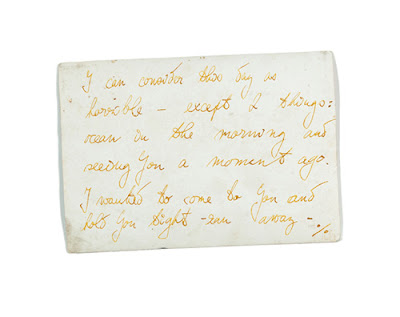 I can consider this day as
horrible – except 2 things:
ocean in the morning and
seeing You a moment ago.
I wanted to come to You and
hold You tight – run away –
%